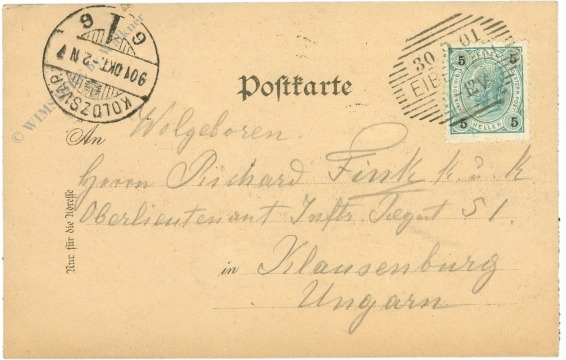 6 1 6
901 OKT. -2 N
KOLOZSVÁR
© WIMS
Postkarte
30 9 01
EIBE
5 5
5 5
HELLER
An Wolgeboren.
Herrn Richard Fink k. u. k
Oberlieutenant Inftr Regmt 51.
in Klausenburg
Ungarn
Nur für die Adresse